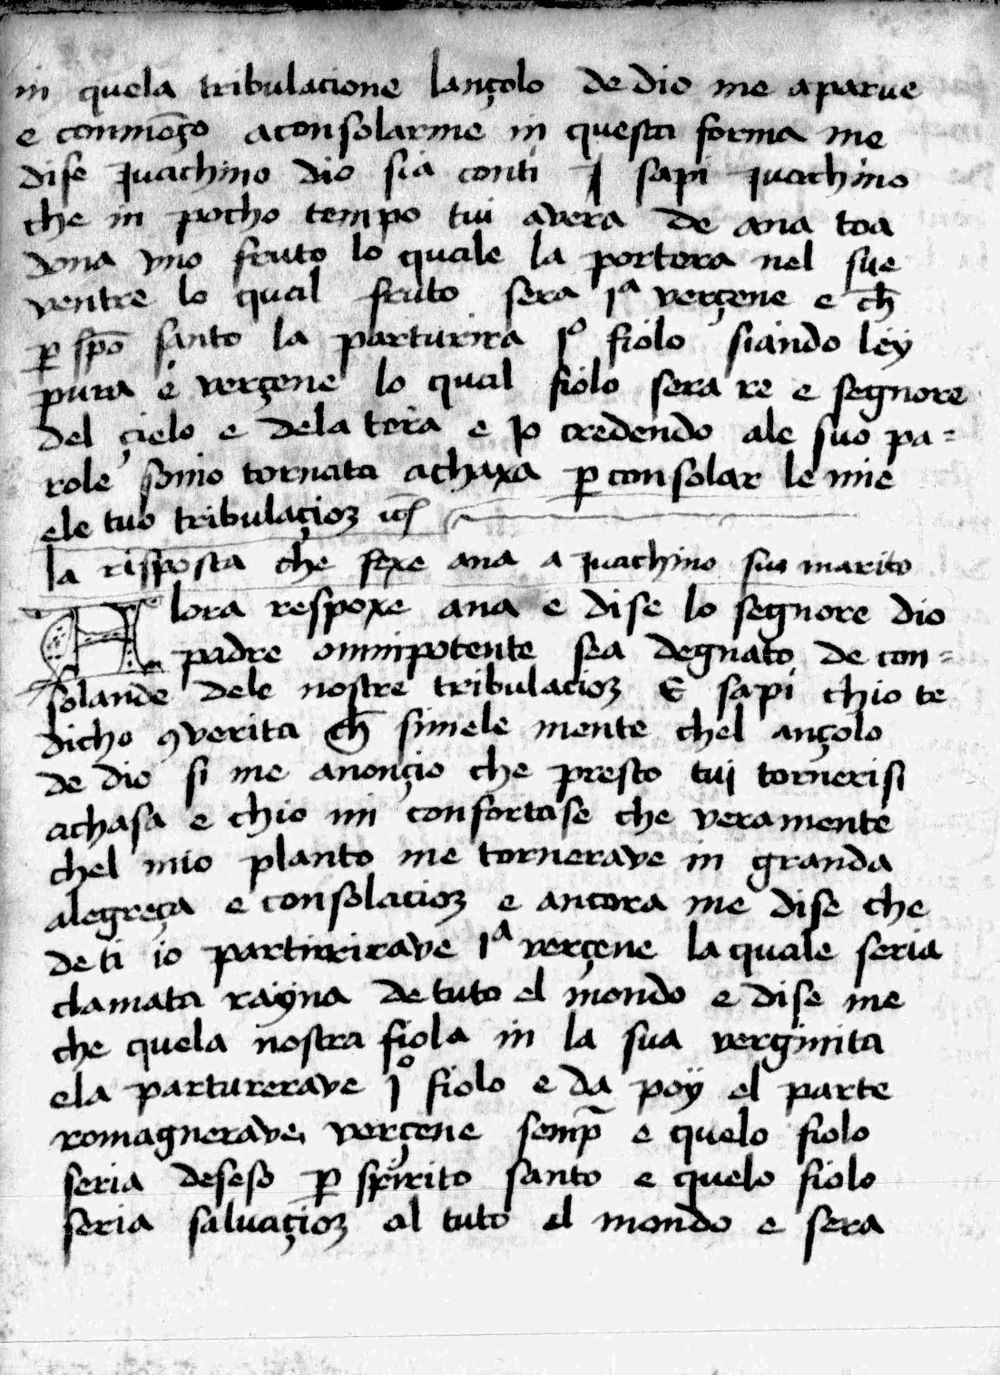 in quela tribulacione lançolo de dio me aparue
e commēço aconsolarme in questa forma me
dise Juachino dio sia conti J sapi Juachino
che in pocho tempo tui avera de ana toa
dona vno fruto lo quale la portera nel sue
ventre lo qual fruto sera Iª verçene e ch̄
ꝑ spō santo la parturira Iº fiolo siando ley
pura e verçene lo qual fiolo sera re e segnore
del çielo e dela tera e Jo credendo ale suo pa=
role sonio tornata achaxa ꝑ consolar le mie
ele tuo tribulaçioꝫ
la risposta che fexe ana a Juachino suo marito
Alora respoxe ana e dise lo segnore dio
padre omnipotente sea degnato de con=
solande dele nostre tribulacioꝫ E sapi chio te
dicho ꝯverita ch̄ simele mente chel ançolo
de dio si me anonçio che presto tui tornerisi
achasa e chio mi confortase che veramente
chel mio planto me tornerave in granda
alegreça e consolacioꝫ e ancora me dise che
de ti io partirirave Iª verçene la quale seria
clamata rayna de tuto el mondo e dise me
che quela nostra fiola in la sua verginita
ela parturerave Iº fiolo e da poy el parte
romagnerave verçene semp̄ e quelo fiolo
seria deseso ꝑ spirito santo e quelo fiolo
seria salvaçioꝫ al tuto el mondo e sera